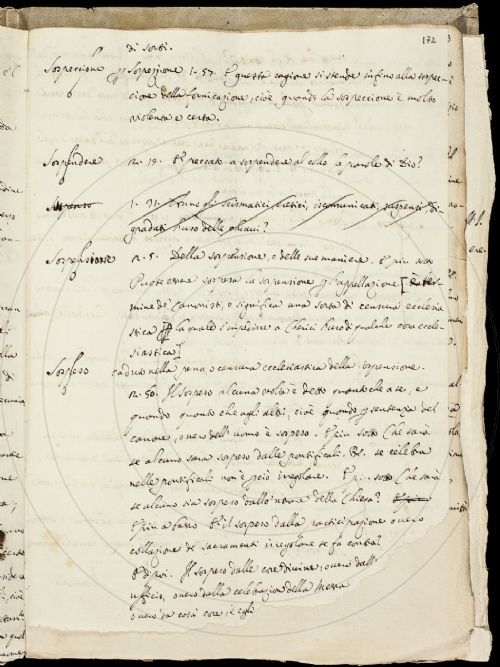 172
di sorti.
Sospeccione p Sospezzione 1. 57. E questa cagione si stende infino alla sospec-
cione della fornicazione, cioè quando la sospeccione è molto
violenta e certa.
Sospendere 2. 19. È peccato a sospendere al collo le parole di Dio?
1. 71. scismatici, eretici, iscomunicati, sospensi, di-
gradati l'uso delle chiavi?
Sospensione 2. 5. Della sospensione, e delle sue maniere. E più sotto
Puote essere sospesa la sospensione p l'appellazione [È ter-
mine de' Canonisti, e significa una sorta di censura ecclesia
stica p la quale s'impedisce a' Cherici l'uso di qualche cosa eccle-
siastica]
Sospeso caduto nella pena, o censura ecclesiastica della sospensione.
2. 50. Il sospeso alcuna volta è detto quanto che a se, e
quando quanto che agli altri, cioè quando p sentenza del
canone, overo dell' uomo è sospeso. E più sotto Che sarà
se alcuno sarà sospeso dalle pontificali. Ris. se celebra
nelle pontificali non è però irregolare. E più sotto Che sarà
se alcuno sia sospeso dallo della Chiesa?
E più a basso. E il sospeso dalla participazione overo
collazione de' sacramenti irregolare se fa contra?
E di poi. Il sospeso dalle cose divine, overo dall'
ufficio, overo dalla celebrazion della Messa
overo da cotà cose, è egli